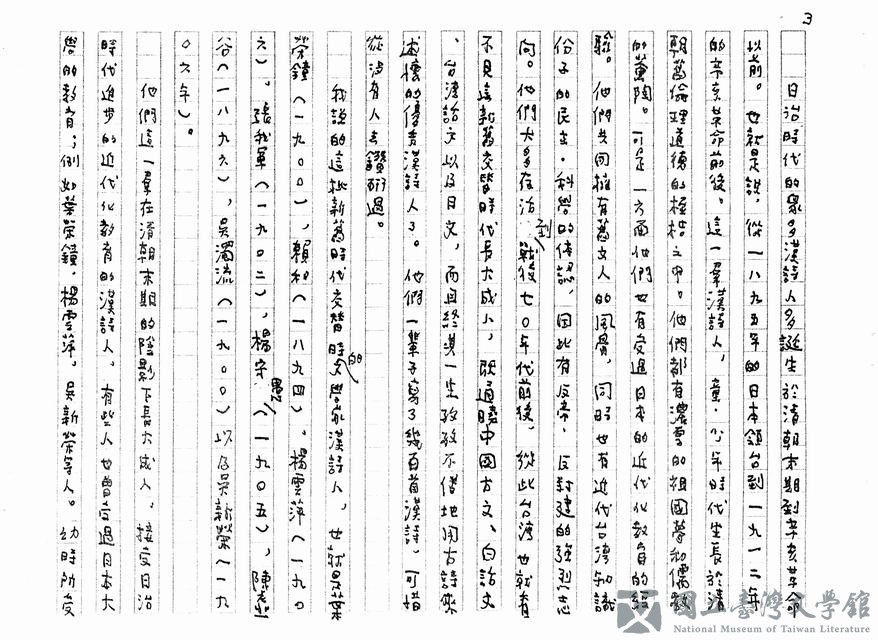 3
日治時代的眾多漢詩人多誕生於清朝末期到辛亥革命
以前。也就是說,從一八九五年的日本領台到一九一二年
的辛亥革命前後。這一羣漢詩人,童、少年時代生長於清
朝舊倫理道德的桎梏之中。他們都有濃厚的祖國夢和儒教
的薰陶。可是一方面他們也有受過日本的近代化教育的經
驗。他們共同擁有舊文人的風骨,同時也有近代台灣知識
份子的民主、科學的傳認,因此有反帝、反封建的強烈志
向。他們大多在治到戰後七〇年代前後,從此台灣也就看
不見這新舊交替時代長大成人,既通曉中國古文、白話文
、台灣話文以及日文,而且終其一生孜孜不倦地用古詩來
述懷的優秀漢詩人了。他們一輩子寫了幾百首漢詩,可惜
從沒有人去鑽研過。
我說的這批新舊時代交替時的文學家漢詩人,也就是葉
榮鐘(一九〇〇),賴和(一八九四),楊雲萍(一九〇
六),張我軍(一九〇二),楊守愚(一九〇五),陳虛
谷(一八九六),吳濁流(一九〇〇)以及吳新榮(一九
〇六年)。
他們這一羣在清朝末期的陰影下長大成人,接受日治
時代進步的近代化教育的漢詩人,有些人也曾受過日本大
學的教育;例如葉榮鐘,楊雲萍,吳新榮等人。幼時所受
國立臺灣文學館
National Museum of Taiwan Literature